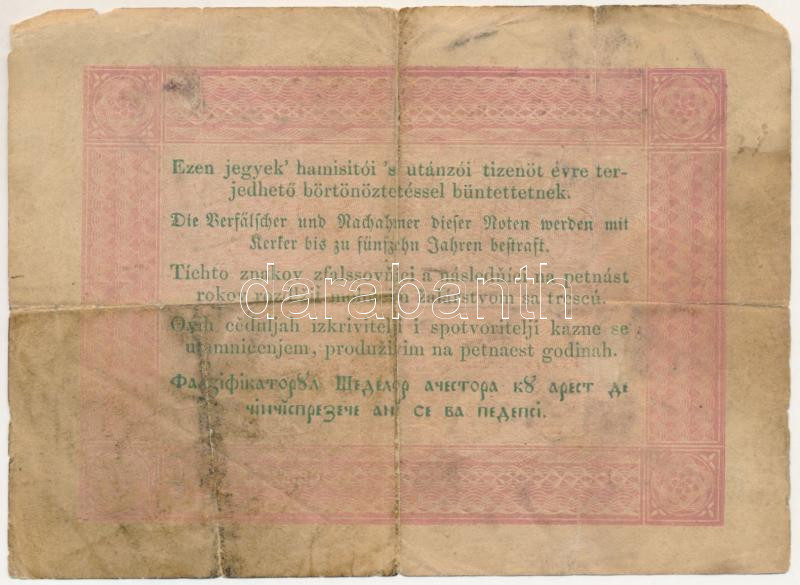 Ezen jegyek' hamisitói 's utánzói tizenöt évre ter-
jedhető börtönöztetéssel büntettetnek.
Die Verfälscher und Nachahmer dieser Noten werden mit
Kerker bis zu fünfzehn Jahren bestraft.
Tíchto znakov zfalssovňíci a následňíci na petnást
rokov žalárstvom sa trescú.
darabanth
Ovih ceduljah izkrivitelji i spotvoritelji kazne se
utamničenjem, produživim na petnaest godinah.
Фалзіфікаторꙋл Шеделор ачестора кꙋ арест де
чінчіспрезече ані се ва педепсі.